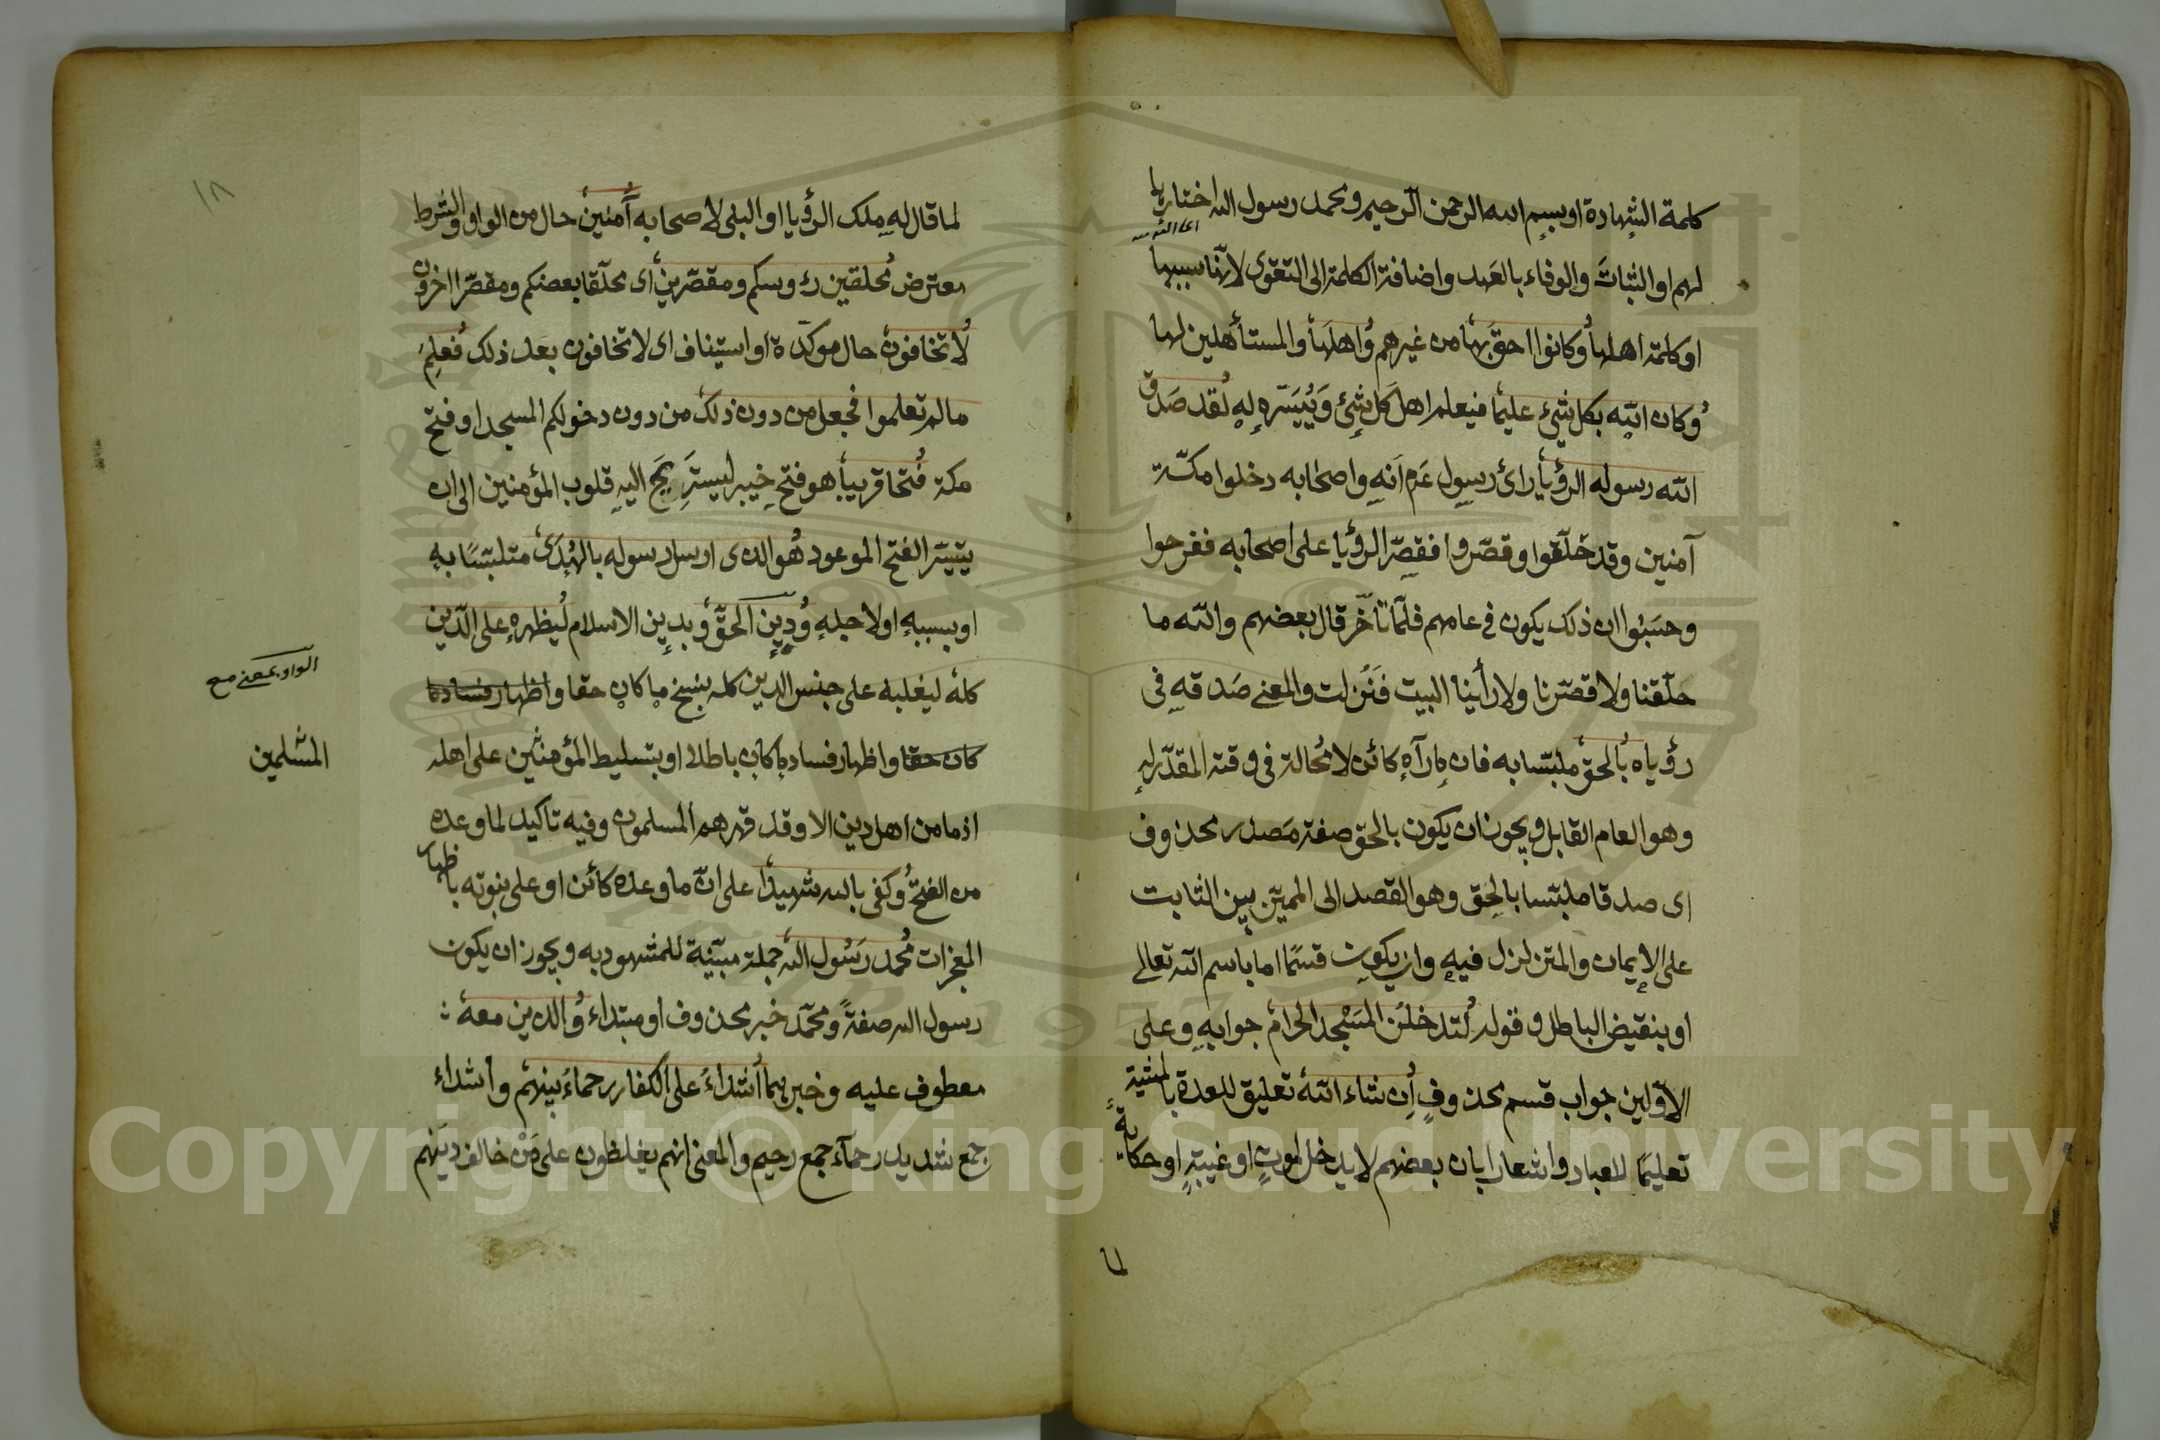 كلمة الشهادة او بسم الله الرحمن الرحيم ومحمد رسول الله اختارها
لهم او الثبات والوفاء بالعهد واضافة الكلمة الى التقوى لانها سببها
او كلمة اهلها وكانوا احق بها من غيرهم واهلها والمستأهلين لها
وكان الله بكل شئ عليما فيعلم اهل كل شئ وييسره له لقد صدق
الله رسوله الرؤيا رائ رسول عم انه واصحابه دخلوا مكة
آمنين وقد حلّقوا وقصّروا فقصّ الرؤيا على اصحابه ففرحوا
وحسبوا ان ذلك يكون في عامهم فلمّا تأخّر قال بعضهم والله ما
حلّقنا ولا قصّرنا ولا رأينا البيت فنزلت والمعنى صدقه في
رؤياه بالحق ملتبسا به فان ما رآه كائن لا محالة في وقته المقدّر له
وهو العام القابل ويجوز ان يكون بالحق صفة مصدر محذوف
اى صدقا ملتبسا بالحق وهو القصد الى المميّز بين الثابت
على الايمان والمتزلزل فيه وان يكون قسما اما باسم الله تعالى
او بنقيض الباطل وقوله لتدخلن المسجد الحرام جوابه وعلى
الاوّلين جواب قسم محذوف ان شاء الله تعليق للعدة بالمشية
تعليما للعباد واشعارا بان بعضهم لا يدخل لموت او غيبة او حكاية
لما
١٨
لما قال له ملك الرؤيا او النبي لاصحابه آمنين حال من الواو والشرط
معترض محلقين رءوسكم ومقصّرين اى محلّقا بعضكم ومقصّرا اخرون
لا تخافون حال موكّدة او استيناف اى لا تخافون بعد ذلك فعلم
ما لم تعلموا فجعل من دون ذلك من دون دخولكم المسجد او فتح
مكة فتحا قريبا هو فتح خيبر ليستريح اليه قلوب المؤمنين الى ان
يتيسّر الفتح الموعود هو الذى ارسل رسوله بالهدى متلبّسا به
او بسببه او لاجله ودين الحقّ وبدين الاسلام ليظهره على الدّين
كله ليغلبه على جنس الدين كله بنسخ ما كان حقا واظهار فساد ما
كان حقا واظهار فساد ما كان باطلا او بتسليط المؤمنين على اهله
اذ ما من اهل دين الا وقد قهرهم المسلمون وفيه تاكيد لما وعده
من الفتح وكفى بالله شهيدا على انّ ما وعده كائن او على نبوته باظهار
المعجزات محمد رسول الله جملة مبيّنة للمشهود به ويجوز ان يكون
رسول الله صفة ومحمّد خبر محذوف او مبتداء والذين معه
معطوف عليه وخبرهما اشداء على الكفار رحماء بينهم واشداء
جمع شديد رحمآء جمع رحيم والمعنى انهم يغلظون على من خالف دينهم
الواو بمعنى مع
المسلمين
1957
Copyright © King Saud University